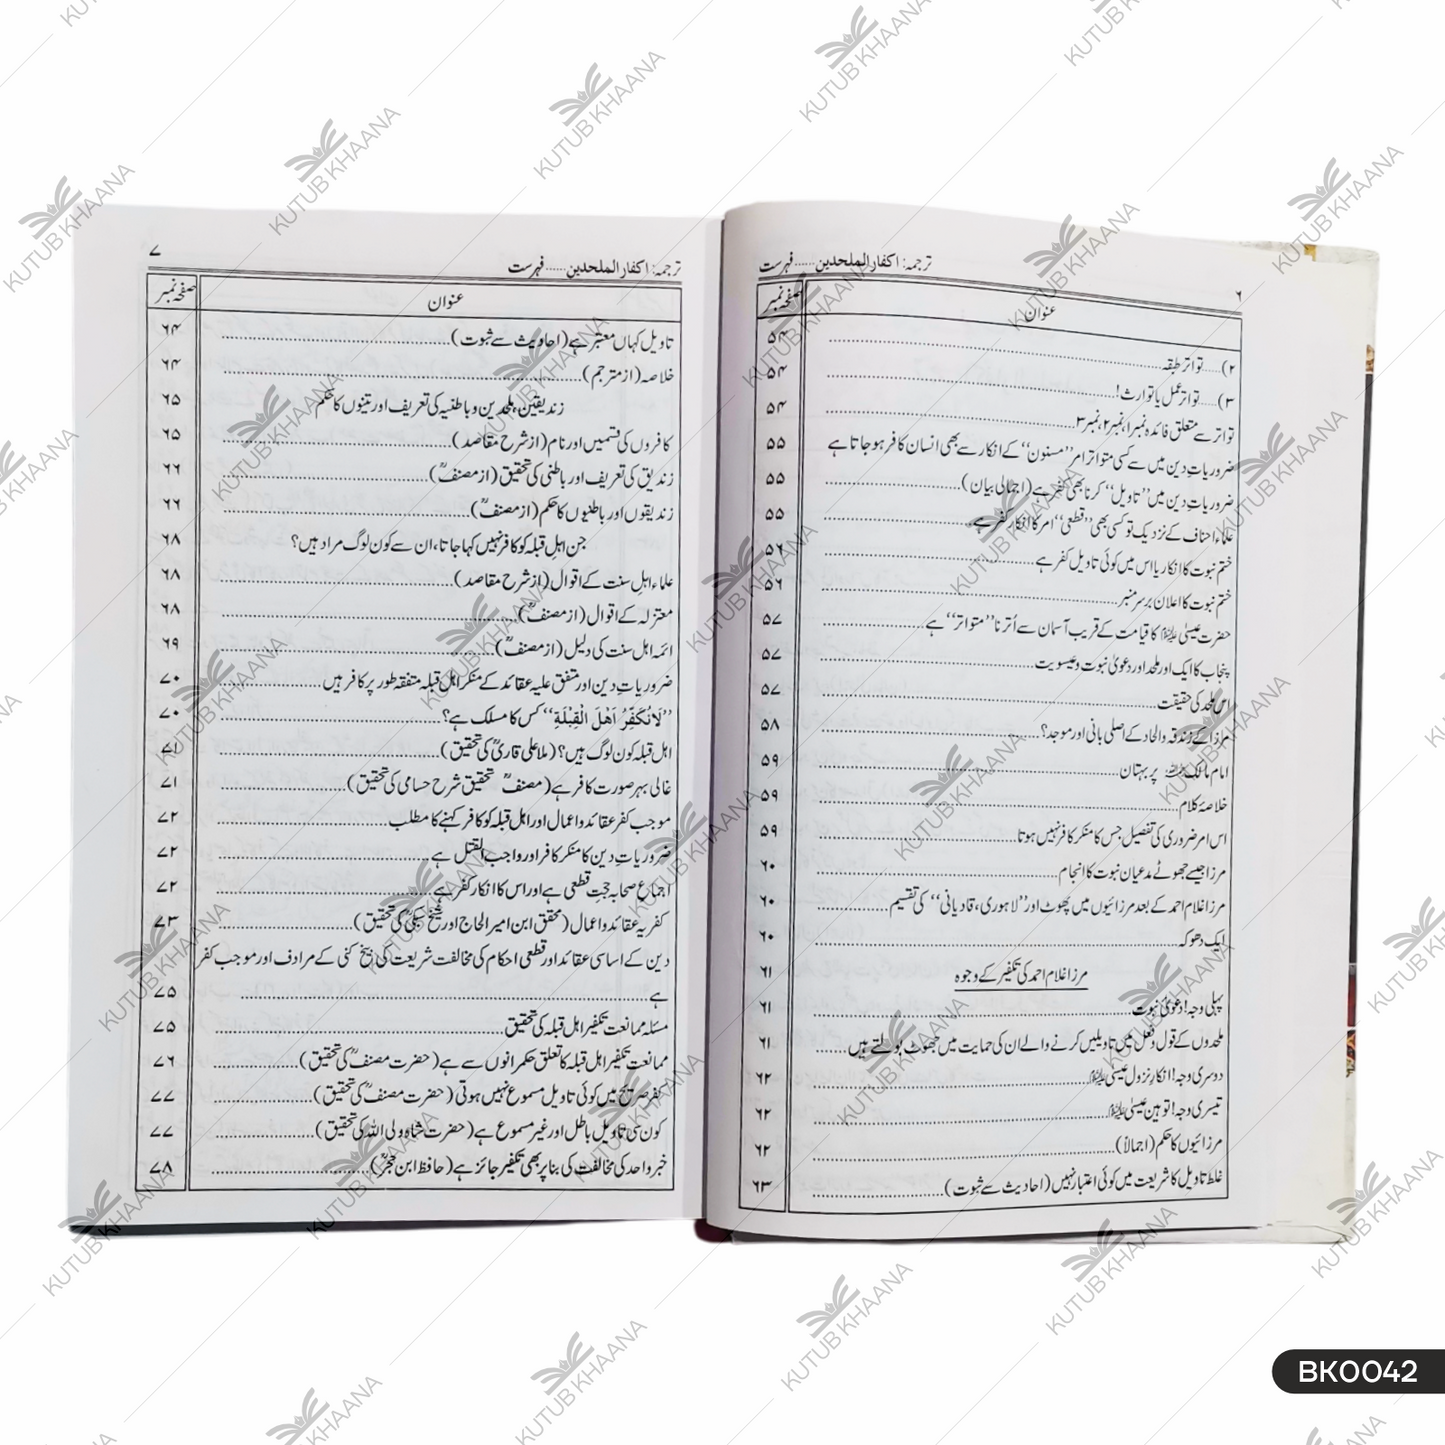 ۶
ترجمہ: اکفار الملحدین...... فہرست
عنوان صفحہ نمبر
۲)..... تواتر طبقہ ۵۴
۳)..... تواتر عمل یا توارث! ۵۴
تواتر سے متعلق فائدہ نمبر۱، نمبر۲، نمبر۳ ۵۴
ضروریاتِ دین میں سے کسی متواتر امر ’’مسنون‘‘ کے انکار سے بھی انسان کافر ہو جاتا ہے ۵۵
ضروریاتِ دین میں ’’تاویل‘‘ کرنا بھی کفر ہے (اجمالی بیان) ۵۵
علماء احناف کے نزدیک تو کسی بھی ’’قطعی‘‘ امر کا انکار کفر ہے ۵۵
ختم نبوت کا انکار یا اس میں کوئی تاویل کفر ہے ۵۶
ختم نبوت کا اعلان برسرِ منبر ۵۶
حضرت عیسیٰ علیہ السلام کا قیامت کے قریب آسمان سے اُترنا ’’متواتر‘‘ ہے ۵۷
پنجاب کا ایک اور ملحد اور دعویٰ نبوت و عیسویت ۵۷
اس ملحد کی حقیقت ۵۷
مرزا کے زندقہ و الحاد کے اصلی بانی اور موجد؟ ۵۸
امام مالک رحمہ اللہ پر بہتان ۵۹
خلاصۂ کلام ۵۹
اس امر ضروری کی تفصیل جس کا منکر کافر نہیں ہوتا ۵۹
مرزا جیسے جھوٹے مدعیان نبوت کا انجام ۶۰
مرزا غلام احمد کے بعد مرزائیوں میں پھوٹ اور ’’لاہوری، قادیانی‘‘ کی تقسیم ۶۰
ایک دھوکہ ۶۰
مرزا غلام احمد کی تکفیر کے وجوہ ۶۱
پہلی وجہ! دعویٰ نبوت ۶۱
ملحدوں کے قول و فعل میں تاویلیں کرنے والے ان کی حمایت میں جھوٹ بولتے ہیں ۶۱
دوسری وجہ! انکارِ نزول عیسیٰ علیہ السلام ۶۲
تیسری وجہ! توہین عیسیٰ علیہ السلام ۶۲
مرزائیوں کا حکم (اجمالاً) ۶۲
غلط تاویل کا شریعت میں کوئی اعتبار نہیں (احادیث سے ثبوت) ۶۳
۷
ترجمہ: اکفار الملحدین...... فہرست
عنوان صفحہ نمبر
تاویل کہاں معتبر ہے (احادیث سے ثبوت) ۶۴
خلاصہ (از مترجم) ۶۴
زندیقین، ملحدین و باطنیہ کی تعریف اور تینوں کا حکم ۶۵
کافروں کی قسمیں اور نام (از شرح مقاصد) ۶۵
زندیق کی تعریف اور باطنی کی تحقیق (از مصنفؒ) ۶۶
زندیقوں اور باطنیوں کا حکم (از مصنفؒ) ۶۶
جن اہل قبلہ کو کافر نہیں کہا جاتا، ان سے کون لوگ مراد ہیں؟ ۶۸
علماء اہلِ سنت کے اقوال (از شرح مقاصد) ۶۸
معتزلہ کے اقوال (از مصنفؒ) ۶۸
ائمہ اہل سنت کی دلیل (از مصنفؒ) ۶۹
ضروریاتِ دین اور متفق علیہ عقائد کے منکر اہل قبلہ متفقہ طور پر کافر ہیں ۷۰
’’لَا نُكَفِّرُ أَهْلَ الْقِبْلَةِ‘‘ کس کا مسلک ہے؟ ۷۰
اہل قبلہ کون لوگ ہیں؟ (ملا علی قاریؒ کی تحقیق) ۷۱
غالی بہر صورت کافر ہے (مصنفؒ تحقیق شرح حسامی کی تحقیق) ۷۱
موجب کفر عقائد و اعمال اور اہل قبلہ کو کافر کہنے کا مطلب ۷۲
ضروریاتِ دین کا منکر کافر اور واجب القتل ہے ۷۲
اجماع صحابہ حجت قطعی ہے اور اس کا انکار کفر ہے ۷۲
کفریہ عقائد و اعمال (محقق ابن امیر الحاج اور شیخ سبکیؒ کی تحقیق) ۷۳
دین کے اساسی عقائد اور قطعی احکام کی مخالفت شریعت کی بیخ کنی کے مرادف اور موجب کفر
ہے ۷۵
مسئلہ ممانعت تکفیر اہل قبلہ کی تحقیق ۷۵
ممانعت تکفیر اہل قبلہ کا تعلق حکمرانوں سے ہے (حضرت مصنفؒ کی تحقیق) ۷۶
کفر صریح میں کوئی تاویل مسموع نہیں ہوتی (حضرت مصنفؒ کی تحقیق) ۷۷
کون سی تاویل باطل اور غیر مسموع ہے (حضرت شاہ ولی اللہ کی تحقیق) ۷۷
خبر واحد کی مخالفت کی بنا پر بھی تکفیر جائز ہے (حافظ ابن حجرؒ) ۷۸
KUTUB KHAANA
BK0042